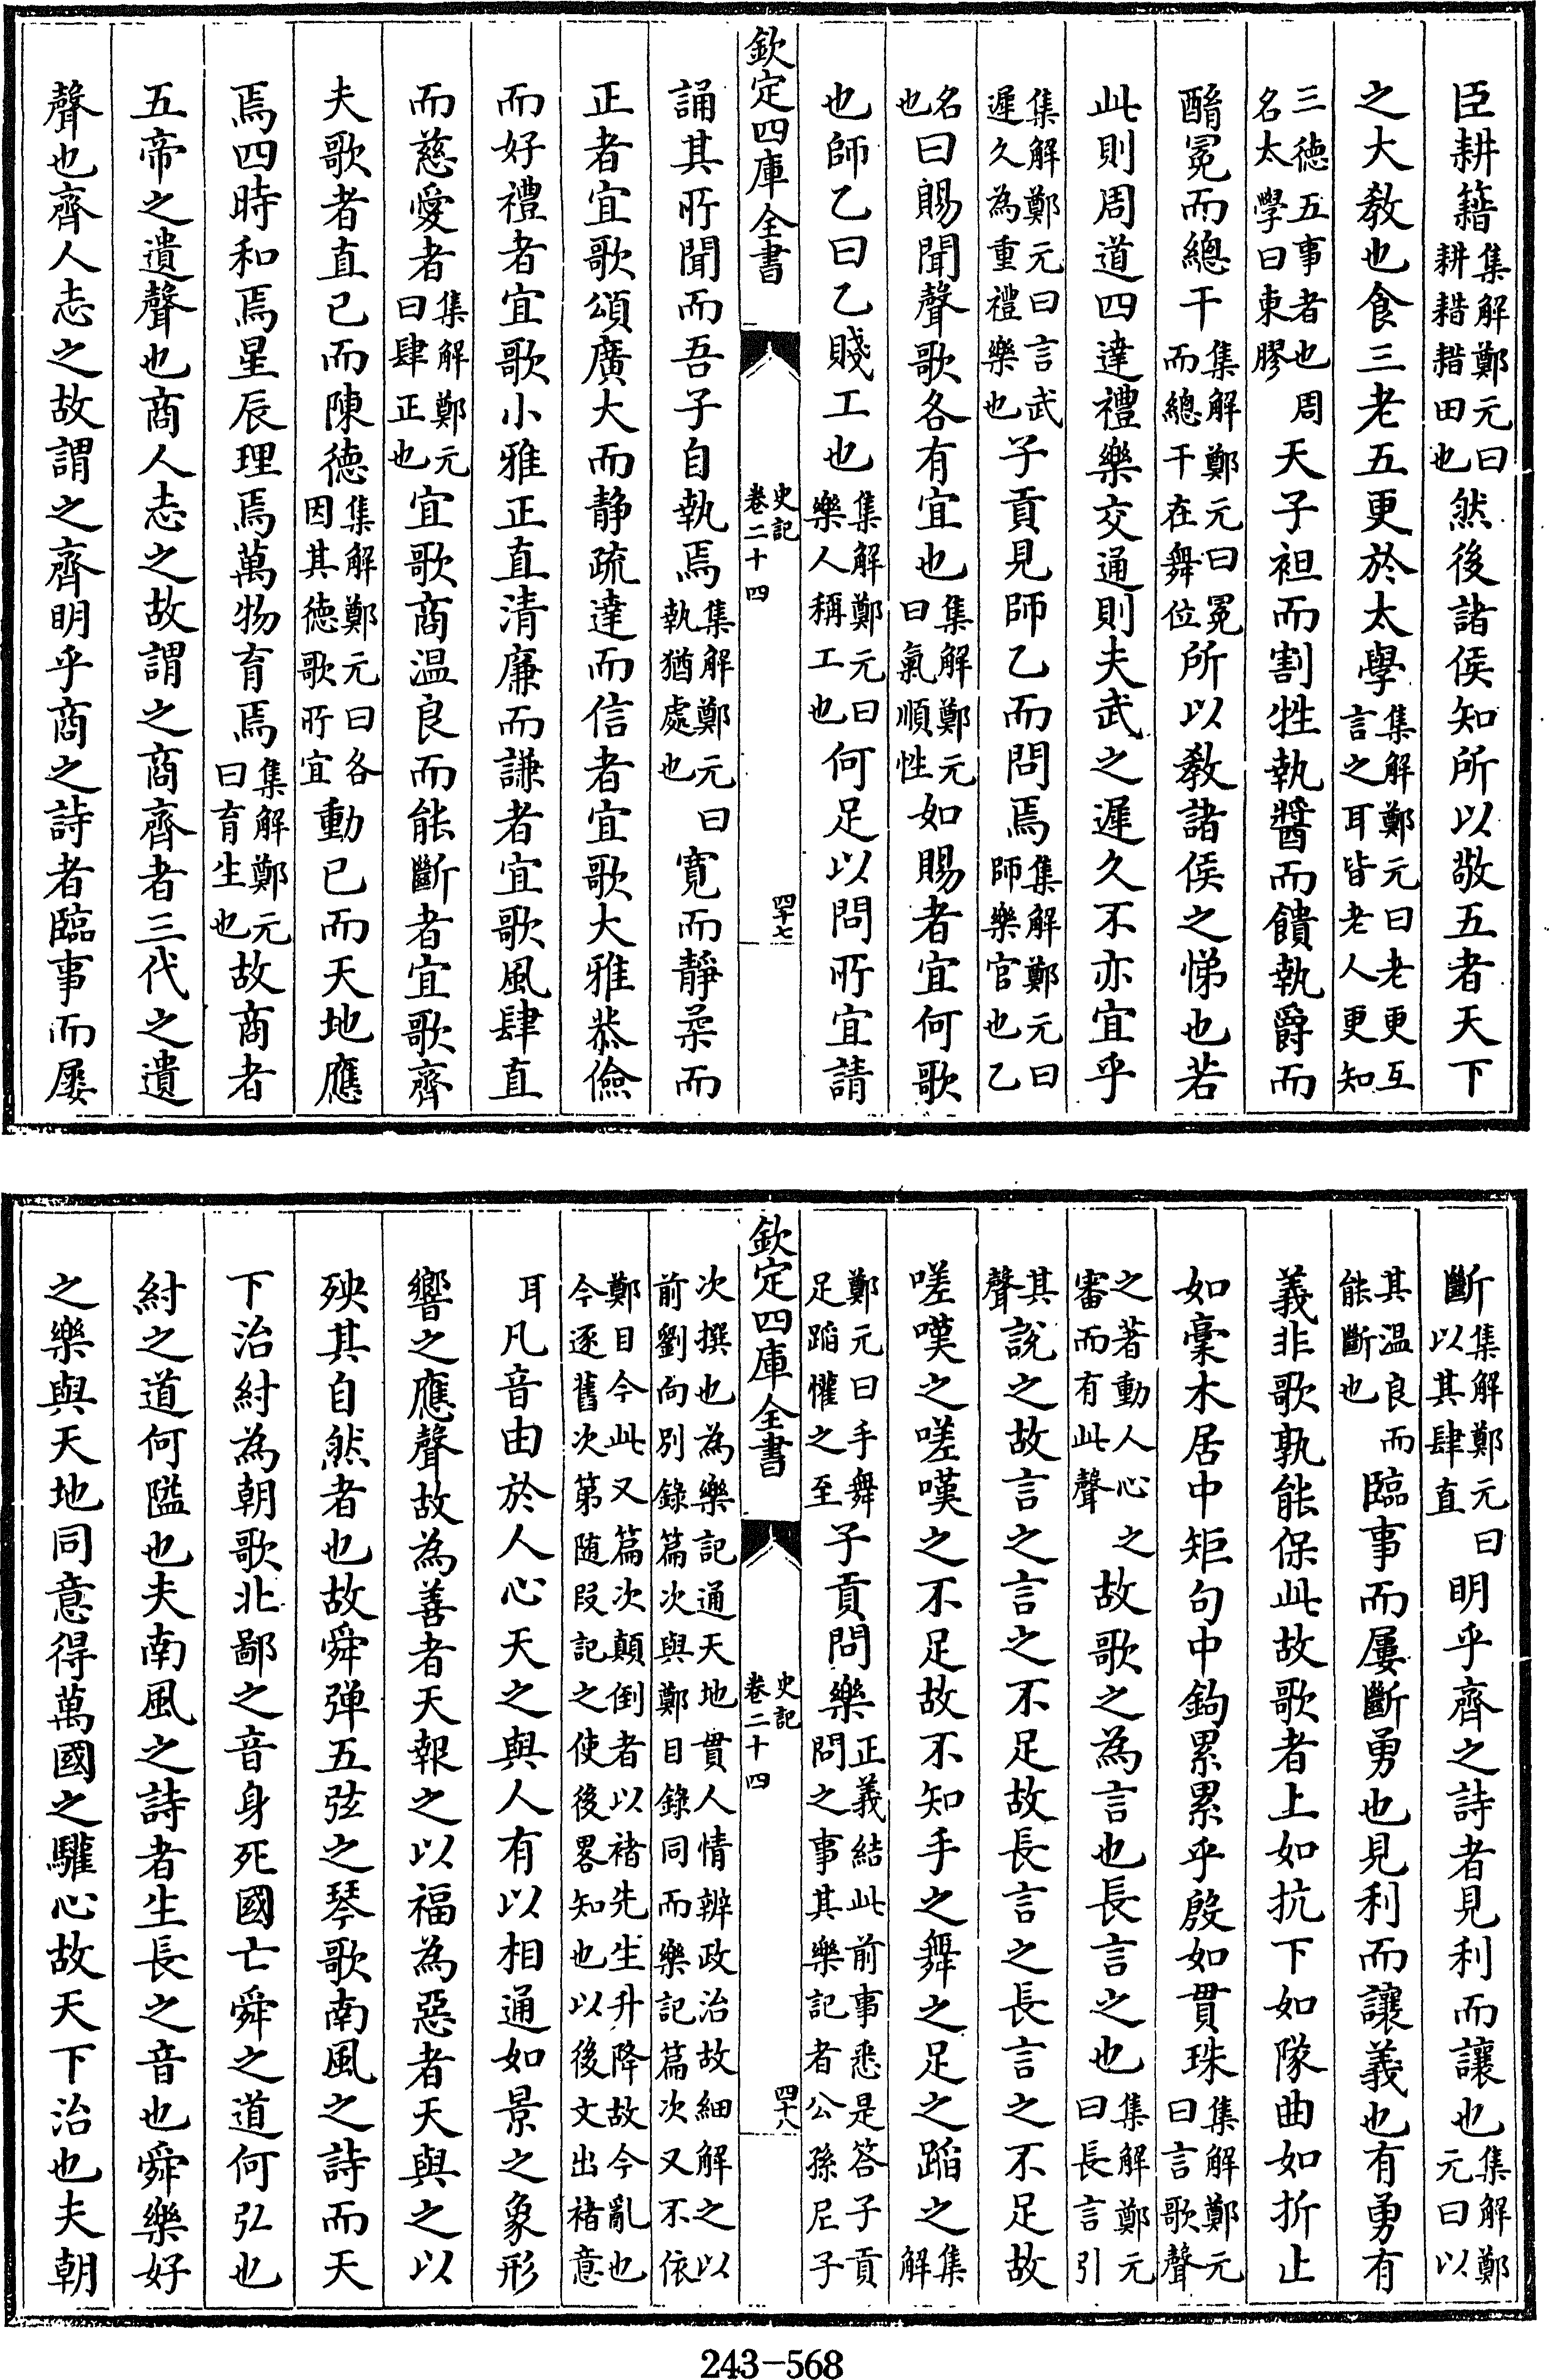 臣耕籍集解鄭元曰耕耤耤田也然後諸侯知所以敬五者天下
之大敎也食三老五更於太學集解鄭元曰老更互言之耳皆老人更知
三德五事者也周名太學曰東膠天子袒而割牲執醬而饋執爵而
酳冕而總干集解鄭元曰冕而總干在舞位所以敎諸侯之悌也若
此則周道四達禮樂交通則夫武之遲久不亦宜乎
集解鄭元曰言武遲久為重禮樂也子貢見師乙而問焉集解鄭元曰師樂官也乙
名也曰賜聞聲歌各有宜也集解鄭元曰氣順性如賜者宜何歌
也師乙曰乙賤工也集解鄭元曰樂人稱工也何足以問所宜請
欽定四庫全書 史記卷二十四 四十七
誦其所聞而吾子自執焉集解鄭元曰執猶處也寛而靜柔而
正者宜歌頌廣大而静疏達而信者宜歌大雅恭儉
而好禮者宜歌小雅正直清廉而謙者宜歌風肆直
而慈愛者集解鄭元曰肆正也宜歌商温良而能斷者宜歌齊
夫歌者直已而陳德集解鄭元曰各因其德歌所宜動已而天地應
焉四時和焉星辰理焉萬物育焉集解鄭元曰育生也故商者
五帝之遺聲也商人志之故謂之商齊者三代之遺
聲也齊人志之故謂之齊明乎商之詩者臨事而屢
斷集解鄭元曰以其肆直明乎齊之詩者見利而讓也集解鄭元曰以
其温良而能斷也臨事而屢斷勇也見利而讓義也有勇有
義非歌孰能保此故歌者上如抗下如隊曲如折止
如槀木居中矩句中鉤累累乎殷如貫珠集解鄭元曰言歌聲
之著動人心之審而有此聲故歌之為言也長言之也集解鄭元曰長言引
其聲說之故言之言之不足故長言之長言之不足故
嗟嘆之嗟嘆之不足故不知手之舞之足之蹈之集解
鄭元曰手舞足蹈懽之至子貢問樂正義結此前事悉是答子貢問之事其樂記者公孫尼子
欽定四庫全書 史記卷二十四 四十八
次撰也為樂記通天地貫人情辨政治故細解之以前劉向別錄篇次與鄭目錄同而樂記篇次又不依
鄭目今此又篇次顛倒者以褚先生升降故今亂也今逐舊次第随段記之使後畧知也以後文出褚意
耳凡音由於人心天之與人有以相通如景之象形
響之應聲故為善者天報之以福為惡者天與之以
殃其自然者也故舜弹五弦之琴歌南風之詩而天
下治紂為朝歌北鄙之音身死國亡舜之道何弘也
紂之道何隘也夫南風之詩者生長之音也舜樂好
之樂與天地同意得萬國之驩心故天下治也夫朝
243-568